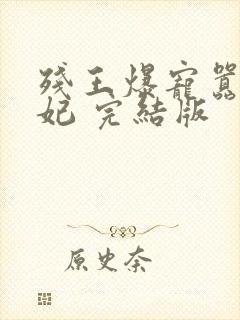 残王爆寵囂
妃 完結版
原史奈